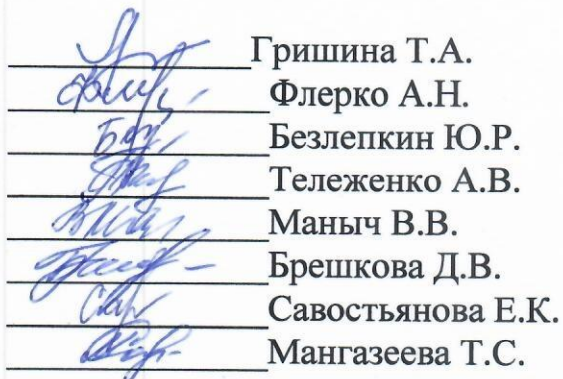 Гришина Т.А.
Флерко А.Н.
Безлепкин Ю.Р.
Тележенко А.В.
Маныч В.В.
Брешкова Д.В.
Савостьянова Е.К.
Мангазеева Т.С.